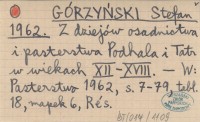 GÓRZYŃSKI Stefan
1962. Z dziejów osadnictwa
i pasterstwa Podhala i Tatr
w wiekach XII-XVIII. — W:
Pasterstwo 1962, s. 7-79, tabl.
18, mapek 6, Rés.
BT/014/1109